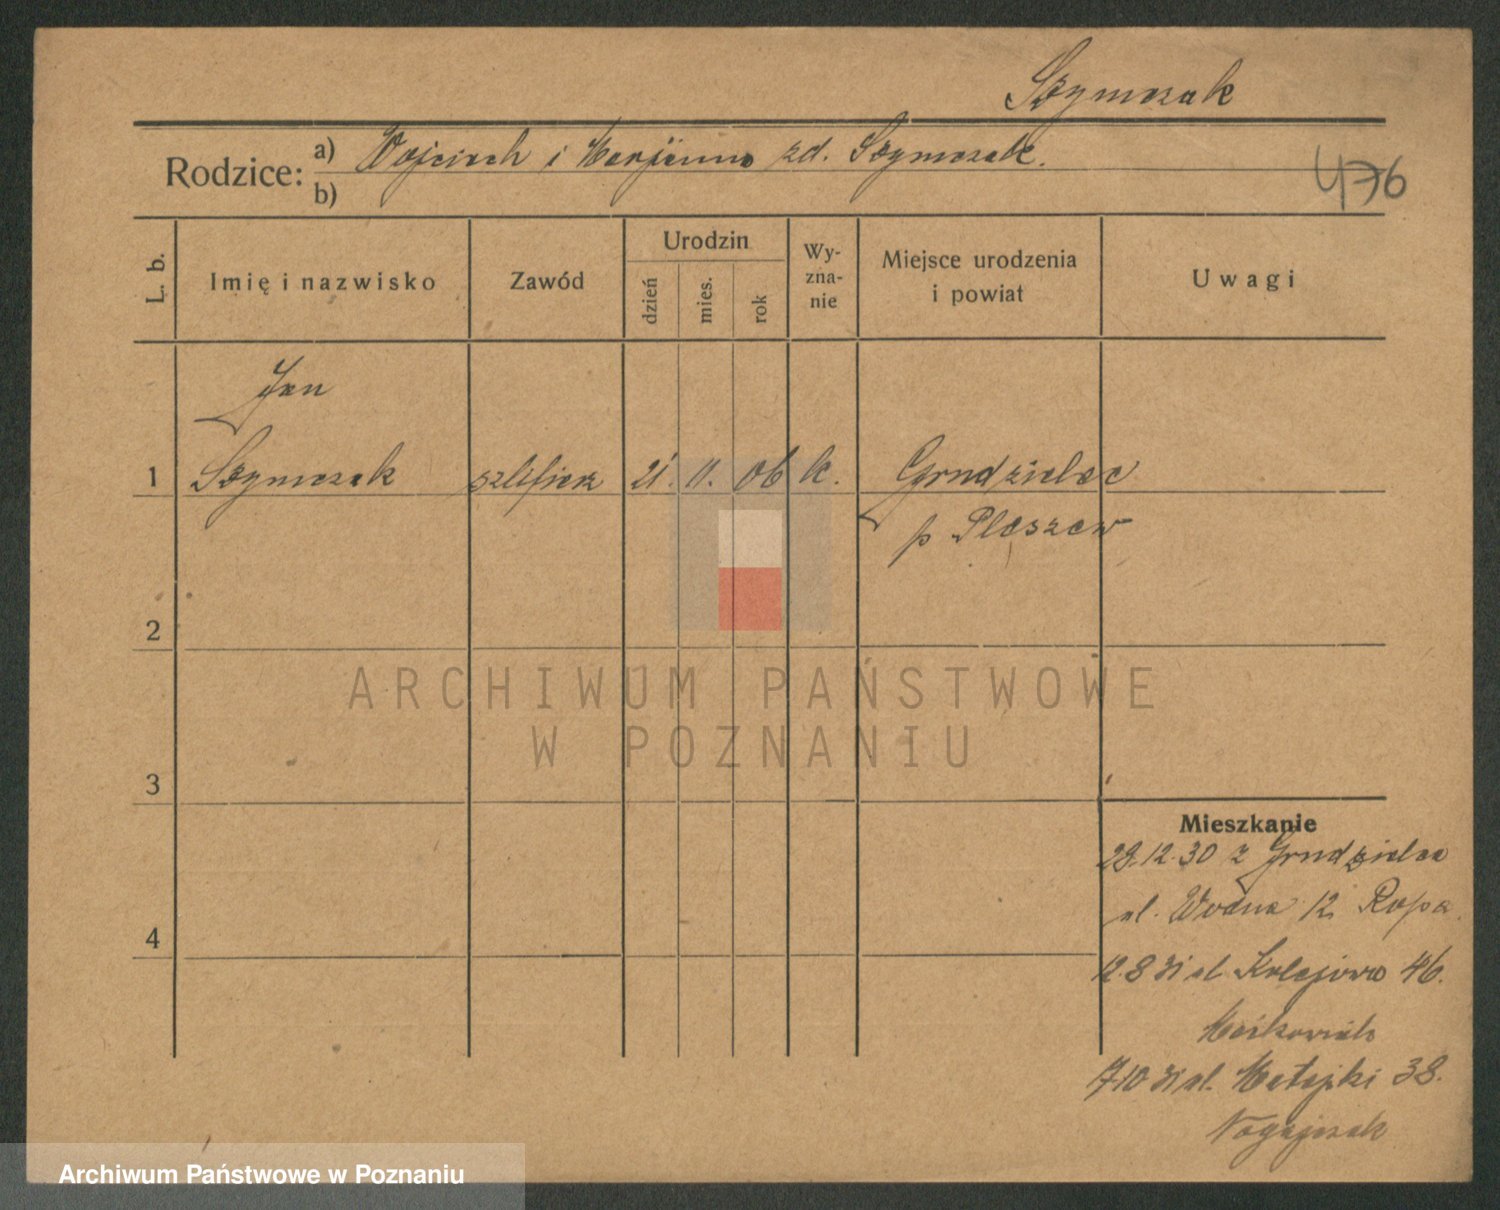 Szymczak
Rodzice: a) Wojciech i Marjanna zd. Szymczak.
b)
476
L. b.
Imię i nazwisko
Zawód
Urodzin
dzień
mies.
rok
Wy-
zna-
nie
Miejsce urodzenia
i powiat
Uwagi
Jan
1 Szymczak szlifierz 21. 11. 06 k. Grudzielec
p Pleszew
2
3
4
Mieszkanie
29.12.30 z Grudzielca
ul. Wodna 12 Ropa
12.8 31 ul Kolejowa 46.
Maćkowiak
7.10 31 ul. Matejki 38.
Nogajczak
ARCHIWUM PAŃSTWOWE
W POZNANIU
Archiwum Państwowe w Poznaniu